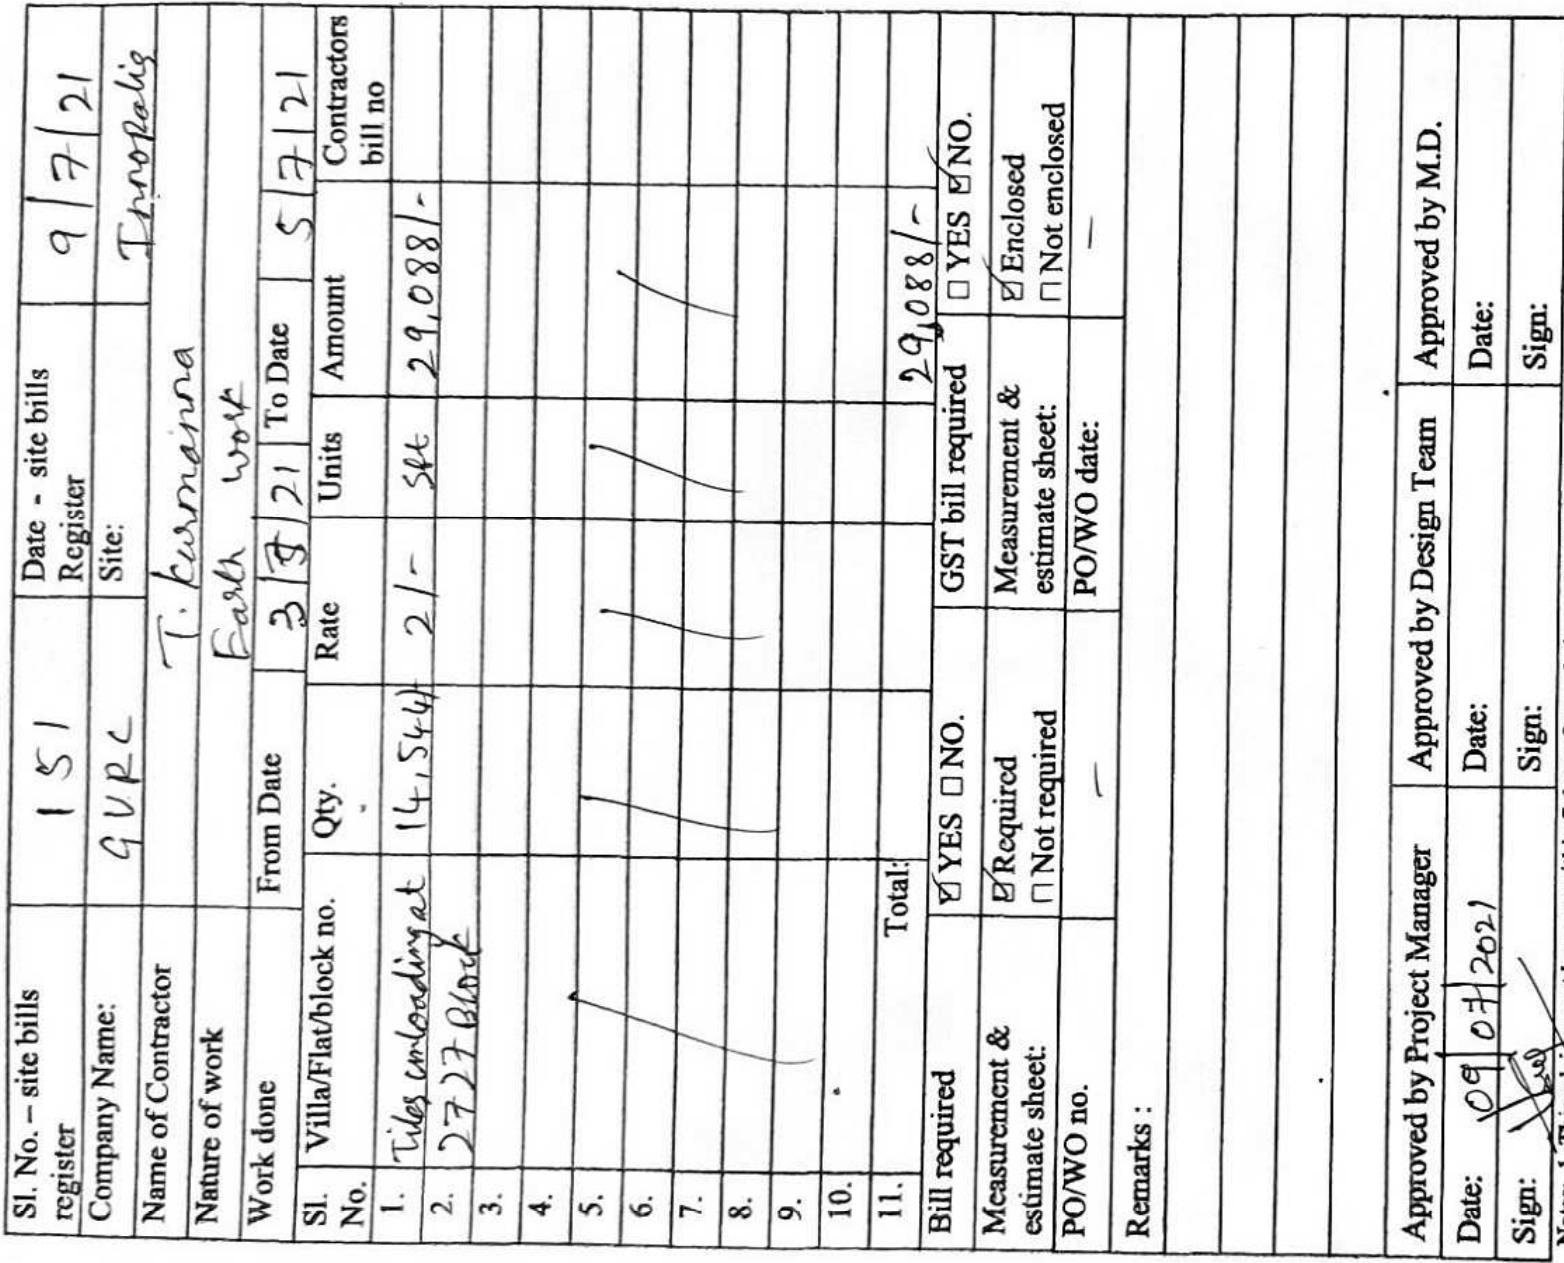 Sl. No. – site bills register 151 Date - site bills Register 9/7/21
Company Name: GVRC Site: Innopolis
Name of Contractor T. kurmanna
Nature of work Earth work
Work done From Date 3/7/21 To Date 5/7/21
Sl. No. Villa/Flat/block no. Qty. Rate Units Amount Contractors bill no
1. Tiles unloading at 14,544 2/- Sft 29,088/-
2. 2727 Block
3.
4.
5.
6.
7.
8.
9.
10.
11. Total: 29,088/-
Bill required ☑ YES □ NO. GST bill required □ YES ☑ NO.
Measurement & estimate sheet: ☑ Required □ Not required Measurement & estimate sheet: ☑ Enclosed □ Not enclosed
PO/WO no. – PO/WO date: –
Remarks :
Approved by Project Manager Approved by Design Team Approved by M.D.
Date: 09/07/2021 Date: Date:
Sign: Sign: Sign: